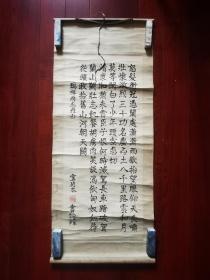 怒髮衝冠憑闌處瀟瀟雨歇抬望眼仰天長嘯
壯懷激烈三十功名塵与土八千里路雲和月
莫等閒白了少年頭空悲切
靖康恥猶未雪臣子恨何時滅駕長車踏破賀
蘭山闕壯志飢餐胡虜肉笑談渴飲匈奴血待
從頭收拾舊山河朝天闕